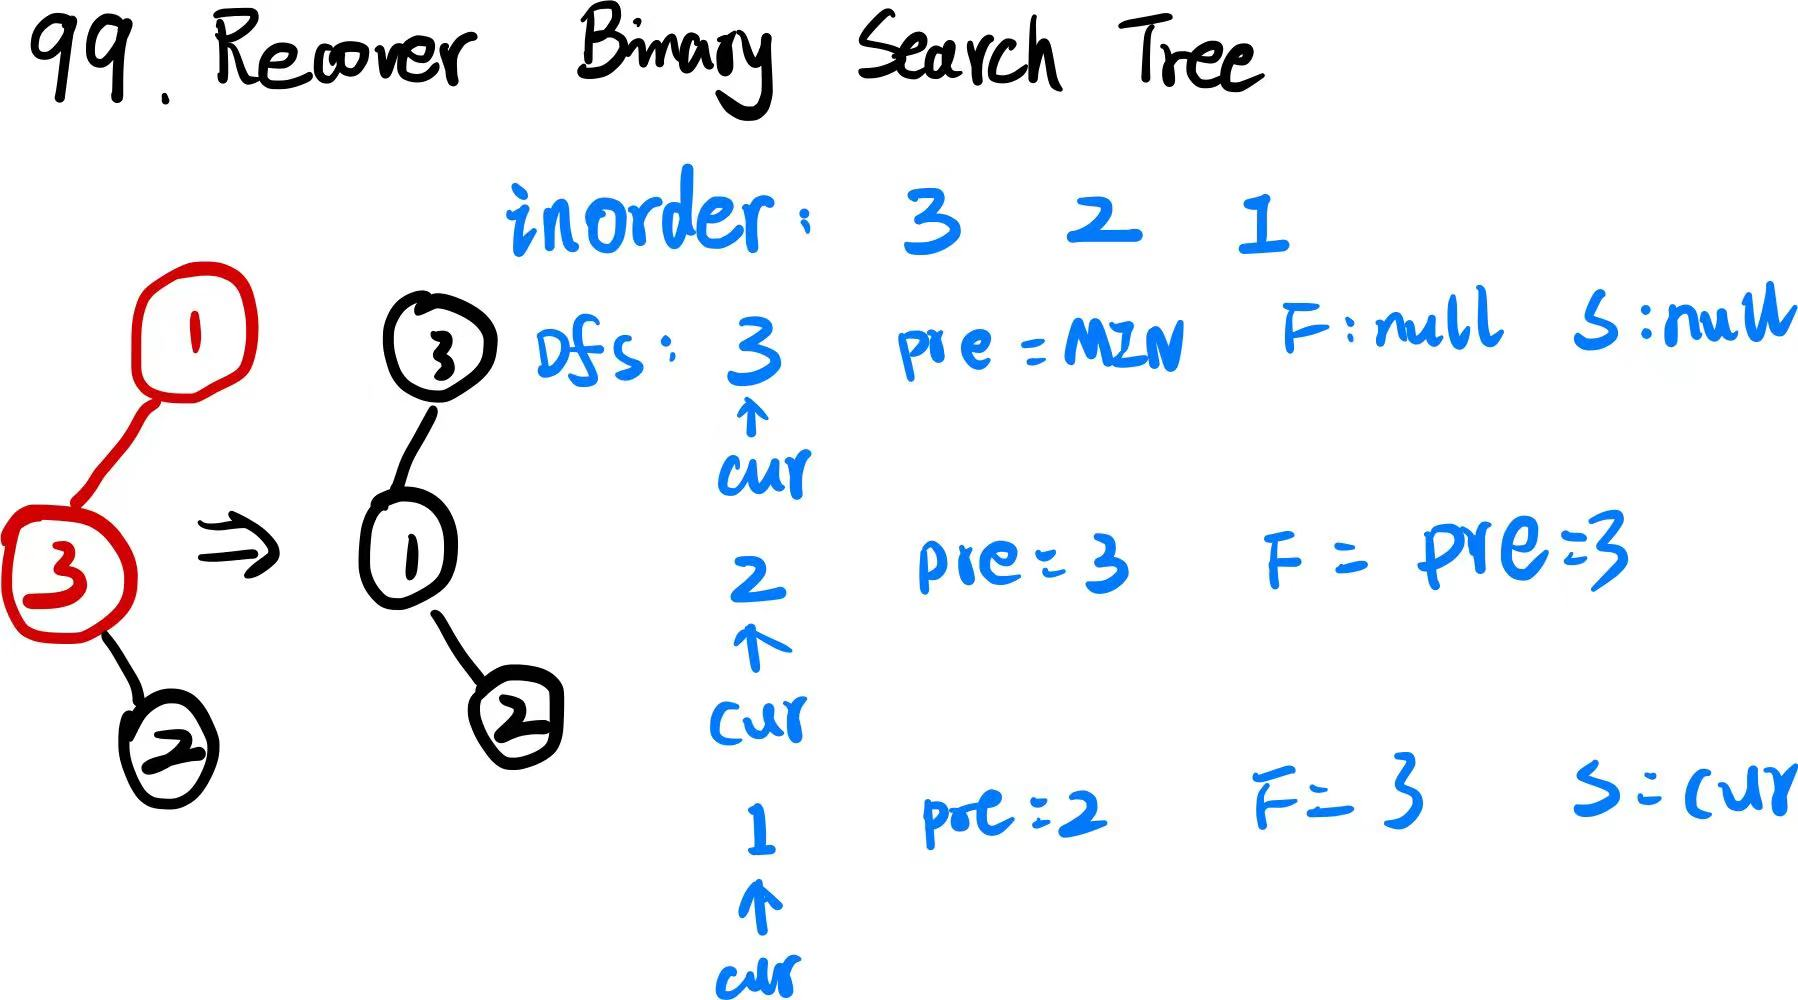 99. Recover Binary Search Tree
inorder: 3 2 1
1
3
Dfs: 3 pre = MIN F: null S: null
cur
3
1
2 pre = 3 F = pre = 3
2
2
cur
1 pre = 2 F = 3 S = cur
cur